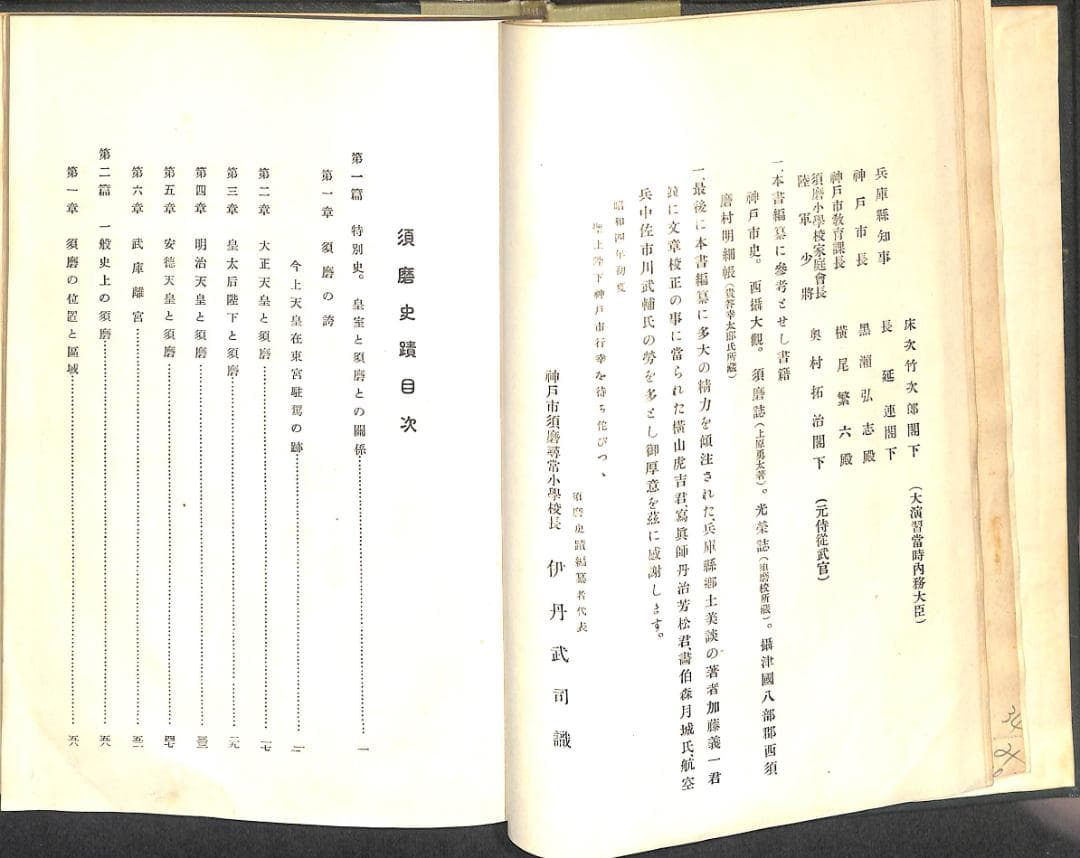 床次竹次郎閣下 (大演習當時內務大臣)
兵庫縣知事 長延連閣下
神戸市長 黒瀬弘志殿
神戸市敎育課長 橫尾繁六殿
須磨小學校家庭會長
陸軍少將 奥村拓治閣下 (元侍從武官)
一、本書編纂に參考とせし書籍
神戸市史。西攝大觀。須磨誌(上原勇太著)。光榮誌(須磨校所藏)。攝津國八部郡西須
磨村明細帳(貴答幸太郎氏所藏)
一、最後に本書編纂に多大の精力を傾注された兵庫縣鄕土美談の著者加藤義一君
竝に文章校正の事に當られた橫山虎吉君寫眞師丹治芳松君、畵伯森月城氏、航空
兵中佐市川武輔氏の勞を多とし御厚意を玆に感謝します。
昭和四年初夏
聖上陛下神戸市行幸を待ち侘びつゝ
須磨史蹟編纂者代表
神戸市須磨尋常小學校長 伊丹武司識
須磨史蹟目次
第一篇 特別史。皇室と須磨との關係 一
第一章 須磨の誇
今上天皇在東宮駐駕の跡 二
第二章 大正天皇と須磨 一七
第三章 皇太后陛下と須磨 二九
第四章 明治天皇と須磨 三三
第五章 安德天皇と須磨 四七
第六章 武庫離宮 五二
第二篇 一般史上の須磨 五八
第一章 須磨の位置と區域 五八